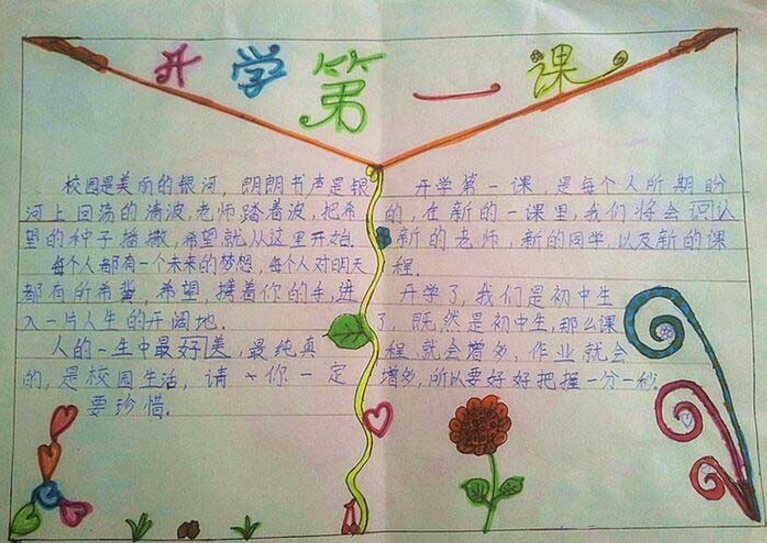 开学第一课
校园是美丽的银河,朗朗书声是银
河上回荡的清波,老师踏着波,把希
望的种子播撒,希望就从这里开始.
每个人都有一个未来的梦想,每个人对明天
都有所希冀,希望,携着你的手,进
入一片人生的开阔地.
人的一生中最好美,最纯真
的,是校园生活,请你一定
要珍惜.
开学第一课,是每个人所期盼
的,在新的一课里,我们将会识认
新的老师,新的同学,以及新的课
程.
开学了,我们是初中生
了,既然是初中生,那么课
程就会增多,作业就会
增多,所以要好好把握一分一秒.